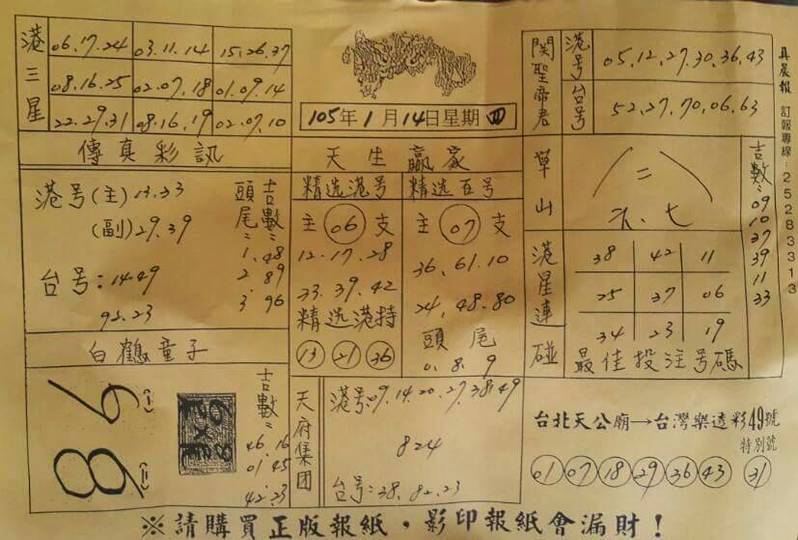 港三星
06.17.24 03.11.14 15.26.37
08.16.25 02.07.18 01.09.14
22.29.31 08.16.19 02.07.10
105年1月14日星期四
関聖帝君
港号 05,12,27,30,36,43
台号 52,27,70,06,63
真晨報 訂報專線:25283313
傳真彩訊
港号(主)13.33
(副)29.39
台号:14.49
92.23
頭尾=
吉數=
1.48
2.89
3.96
天生贏家
精选港号 精选百号
主06支 主07支
12.17.28 36,61.10
33.39.42 24,48.80
精选港特 頭尾
13 21 36 0.8.9
草山
八
二
六、七
吉數=
09
10
37
39
11
33
港星連碰
38 42 11
25 37 06
34 23 19
最佳投注号碼
白鶴童子
(一)
(二)
吉數=
06.16
01.45
42.23
天府集团
港号:09.14.20.27.38.49
824
台号:38.82.23
台北天公廟→台灣樂透彩49號
特別號
01 07 18 29 36 43 31
※請購買正版報紙・影印報紙會漏財!